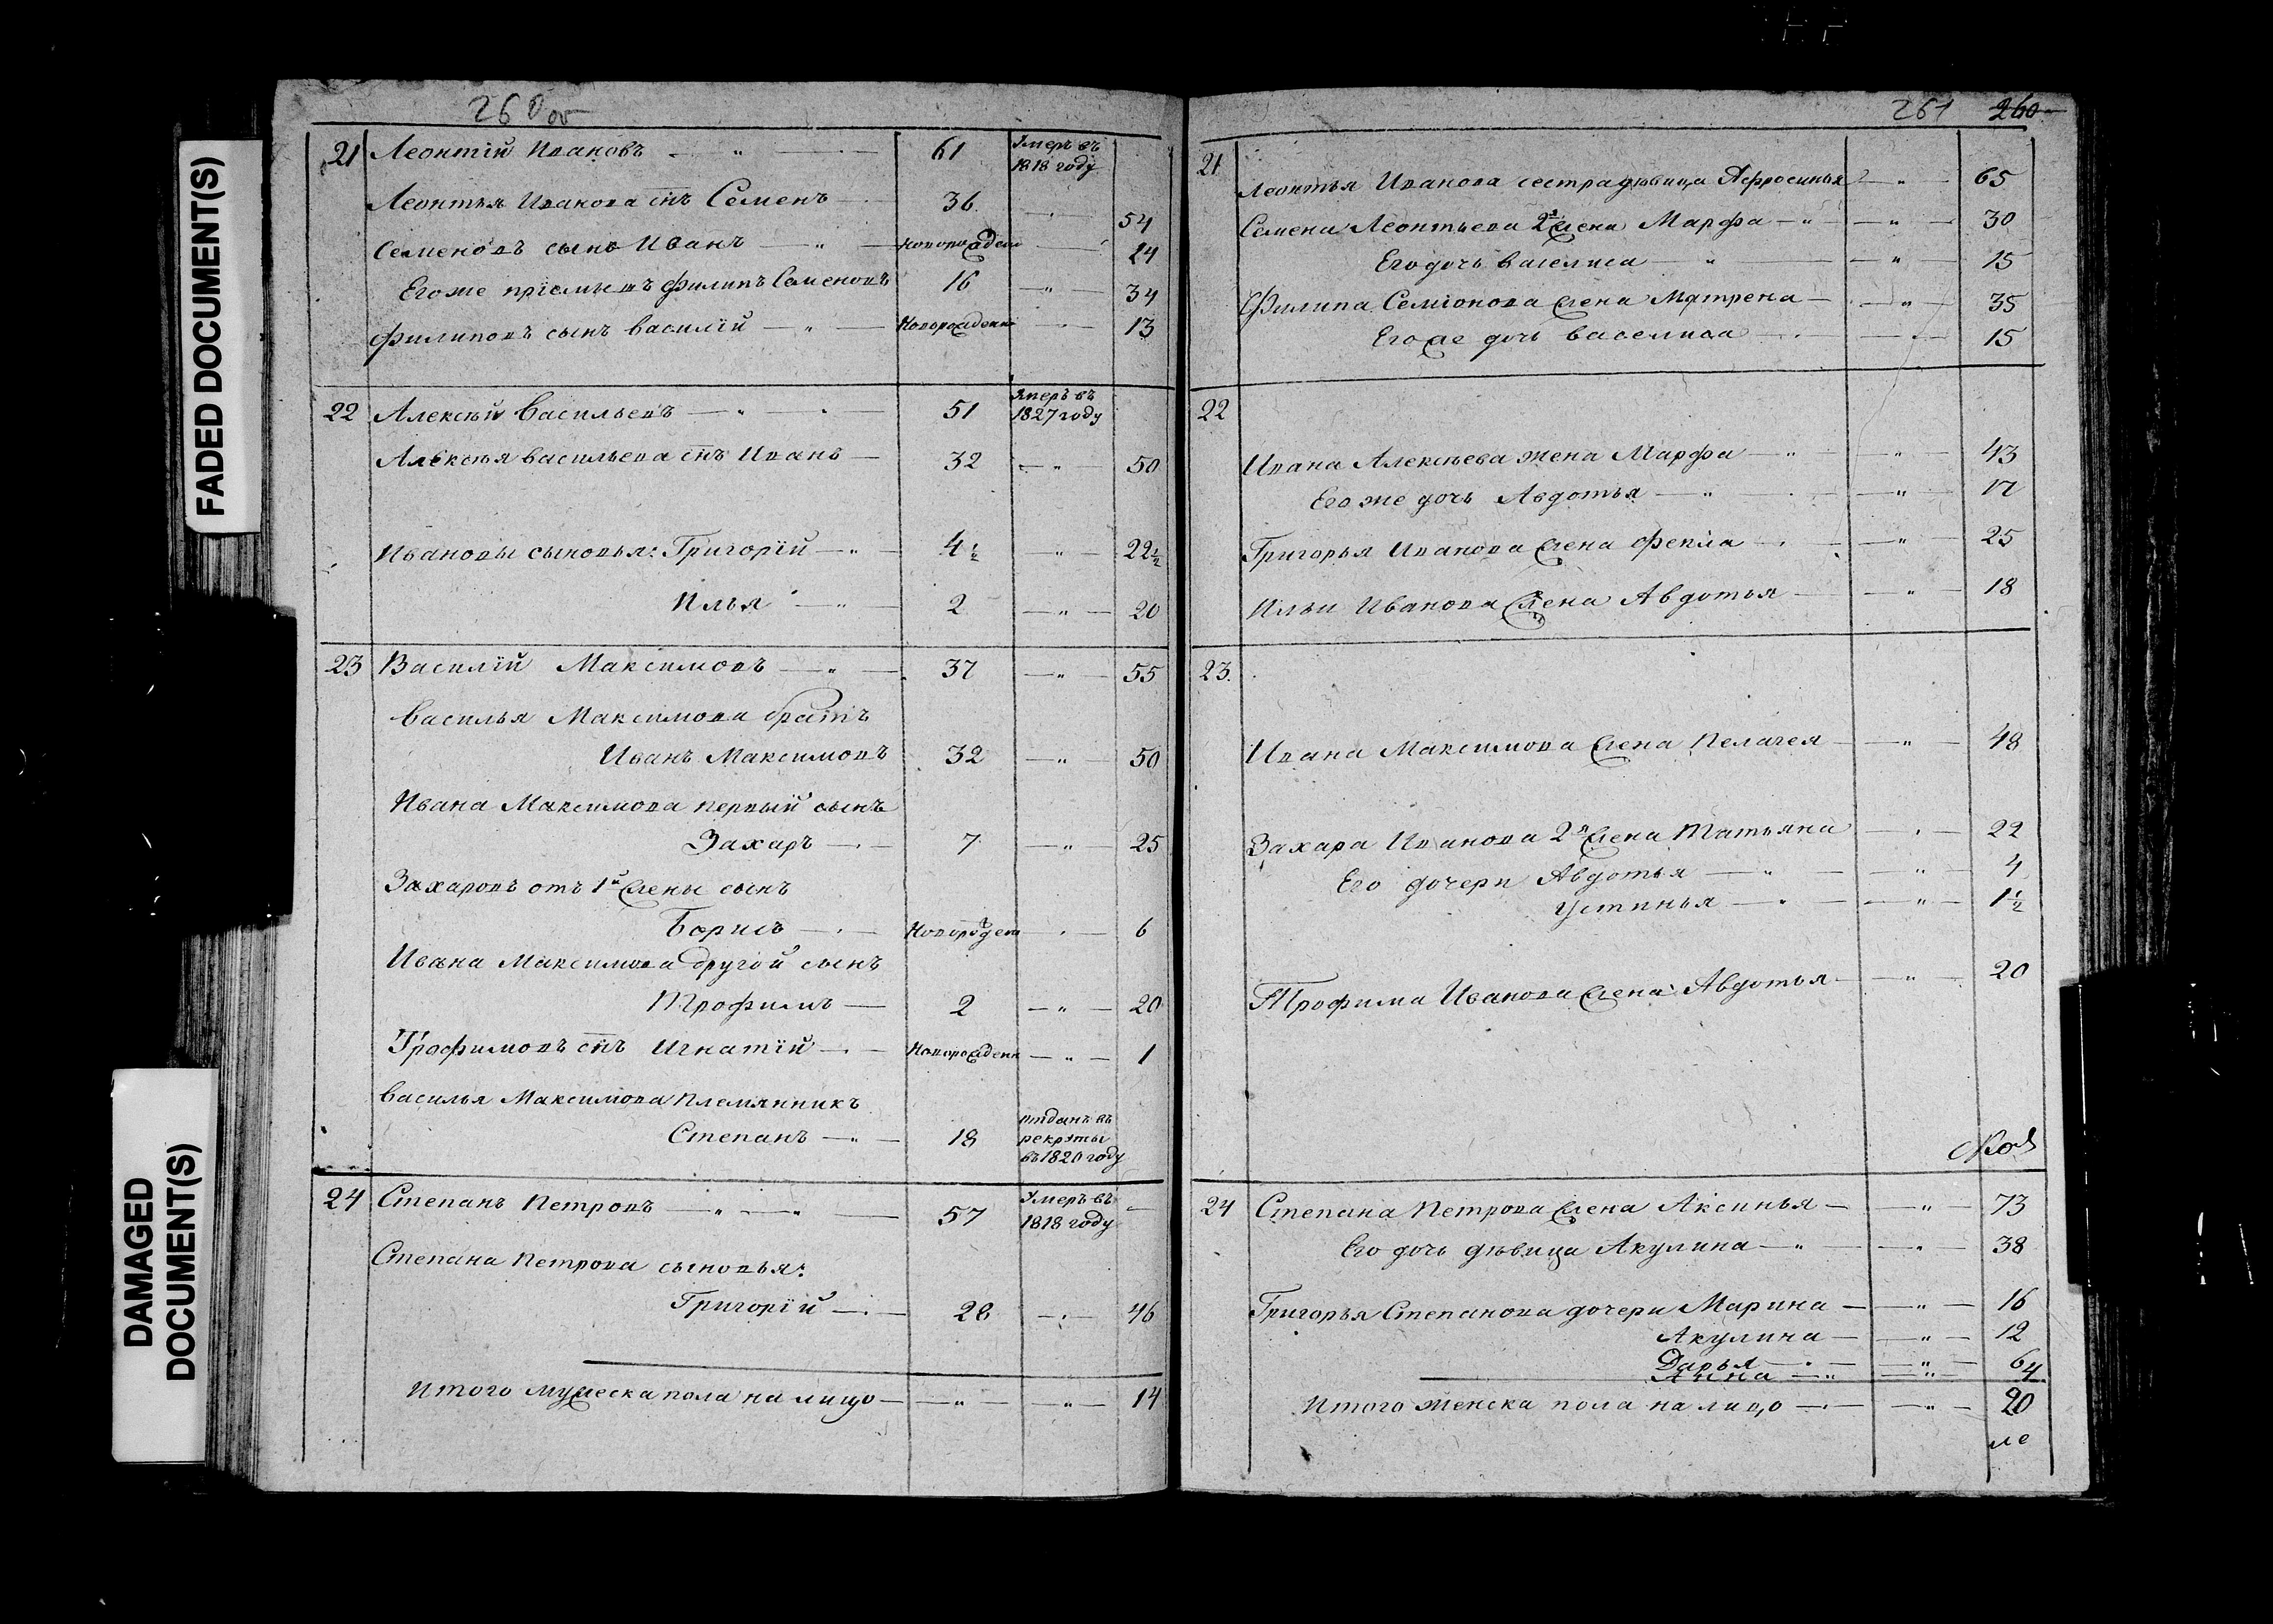 FADED DOCUMENT(S)
DAMAGED
DOCUMENT(S)
260 об
21 Леонтій Ивановъ — „ — 61 Умеръ въ
1818 году
Леонтья Иванова снъ Семенъ — 36 — 54
Семеновъ сынъ Иванъ — „ — новорожден — 14
Его же пріемышъ Филипъ Семеновъ 16 — „ — 34
Филиповъ сынъ Василій — „ — Новорожденн — 13
22 Алексѣй Васильевъ — „ — 51 Умеръ въ
1827 году
Алексѣя Васильева снъ Иванъ — 32 — „ — 50
Ивановы сыновья: Григорій — „ — 4½ „ — 22½
Илья — „ — 2 — „ — 20
23 Василій Максимовъ — „ — 37 — „ — 55
Василья Максимова братъ
Иванъ Максимовъ 32 — „ — 50
Ивана Максимова первый сынъ
Захаръ — 7 — „ — 25
Захаровъ отъ 1й жены сынъ
Борисъ — Новорожден — 6
Ивана Максимова другой сынъ
Трофимъ — 2 — „ — 20
Трофимовъ снъ Игнатій — Новорожденн — „ — 1
Василья Максимова Племянникъ
Степанъ — „ — 18 отданъ въ
рекруты
въ 1820 году
24 Степанъ Петровъ — „ — „ — 57 Умеръ въ
1818 году —
Степана Петрова сыновья:
Григорій — 28 — 46
Итого мужеска пола на лицо — „ — „ — 14
261 260
21
Леонтья Иванова сестра дѣвица Афросинья — „ — 65
Семена Леонтьева 2я жена Марфа — „ — „ — 30
Его дочь Василиса — „ — „ — 15
Филипа Семіонова жена Матрена — „ — 35
Его же дочь Василиса — 15
22
Ивана Алексѣева жена Марфа — „ — „ — 43
Его же дочь Авдотья — „ — „ — 17
Григорья Иванова жена Фекла — „ — 25
Ильи Иванова жена Авдотья — „ — 18
23.
Ивана Максимова жена Пелагея — „ — 48
Захара Иванова 2я жена Татьяна — 22
Его дочери Авдотья — „ — „ — 4
Устинья — „ — 1½
Трофима Иванова жена Авдотья — „ — 20
24 Степана Петрова жена Аксинья — „ — 73
Его дочь дѣвица Акулина — „ — „ — 38
Григорья Степанова дочери Марина — „ — 16
Акулина — „ — 12
Дарья — „ — 6
Анна — „ — „ — 4
Итого женска пола на лицо — „ — 20